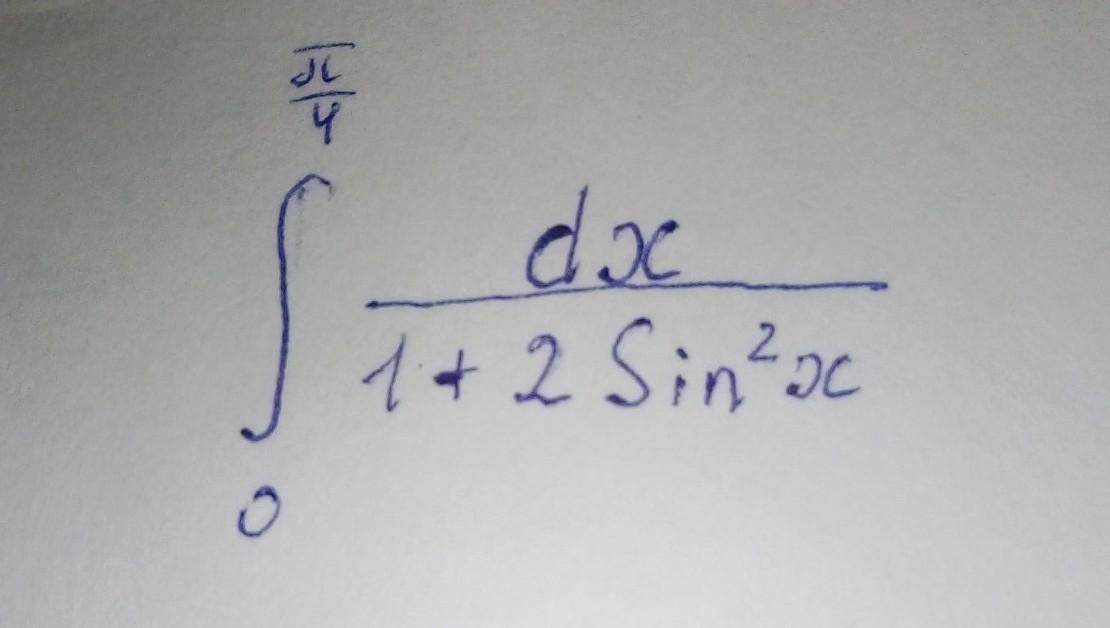 π/4
∫ dx / (1 + 2 Sin²x)
0